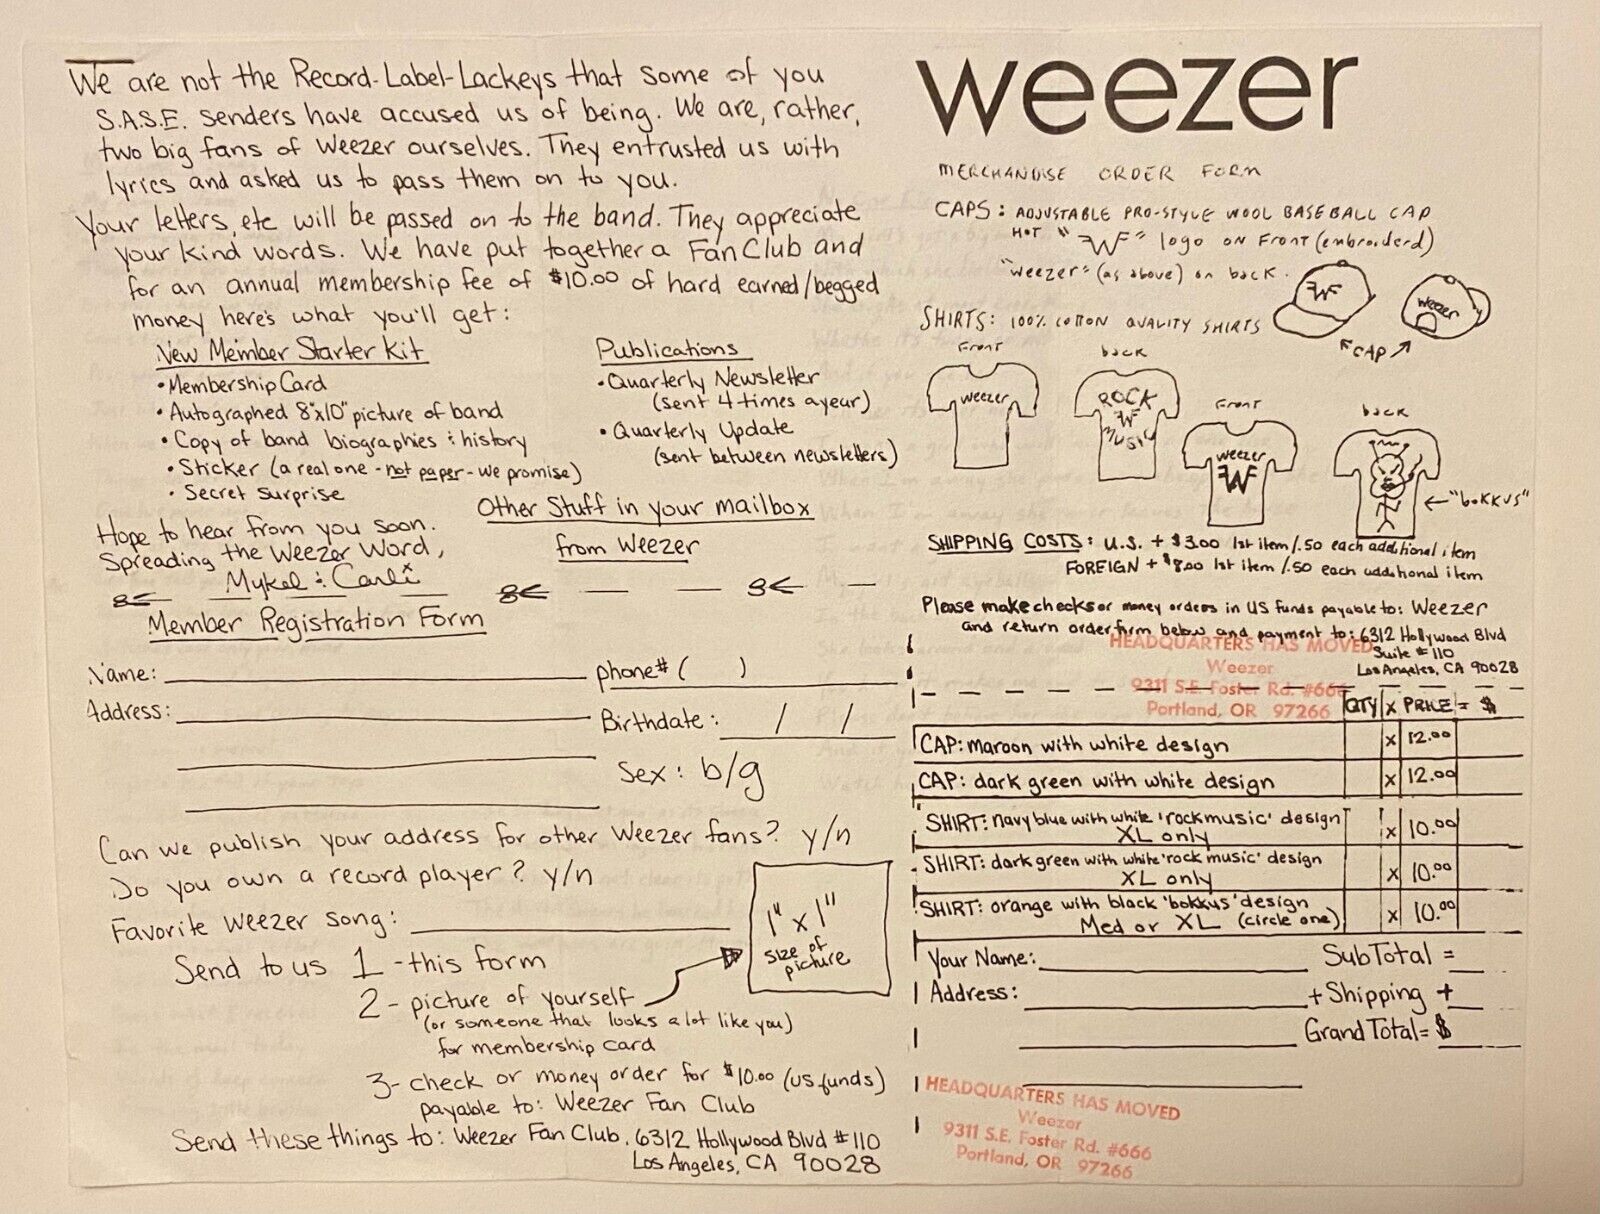 We are not the Record-Label-Lackeys that some of you
S.A.S.E. senders have accused us of being. We are, rather,
two big fans of Weezer ourselves. They entrusted us with
lyrics and asked us to pass them on to you.
Your letters, etc will be passed on to the band. They appreciate
your kind words. We have put together a Fan Club and
for an annual membership fee of $10.00 of hard earned/begged
money here's what you'll get:
New Member Starter Kit
• Membership Card
• Autographed 8"x10" picture of band
• Copy of band biographies & history
• Sticker (a real one - not paper - we promise)
• Secret surprise
Publications
• Quarterly Newsletter
(sent 4 times a year)
• Quarterly Update
(sent between newsletters)
Other Stuff in your mailbox
from Weezer
Hope to hear from you soon.
Spreading the Weezer Word,
Mykel & Carli
Member Registration Form
Name:
phone# ( )
Address:
Birthdate: / /
Sex: b/g
Can we publish your address for other Weezer fans? y/n
Do you own a record player? y/n
Favorite Weezer song:
Send to us 1 - this form
2 - picture of yourself
(or someone that looks a lot like you)
for membership card
1" x 1"
size of
picture
3 - check or money order for $10.00 (US funds)
payable to: Weezer Fan Club
Send these things to: Weezer Fan Club, 6312 Hollywood Blvd #110
Los Angeles, CA 90028
weezer
MERCHANDISE ORDER FORM
CAPS: ADJUSTABLE PRO-STYLE WOOL BASEBALL CAP
HOT "WF" logo on Front (embroiderd)
"weezer" (as above) on back.
WF
weezer
CAP
SHIRTS: 100% COTTON QUALITY SHIRTS
Front
back
weezer
ROCK
WF
MUSIC
Front
back
weezer
WF
"bokkus"
SHIPPING COSTS: U.S. + $3.00 1st item/.50 each additional item
FOREIGN + $8.00 1st item/.50 each additional item
Please make checks or money orders in US funds payable to: Weezer
and return order form below and payment to: 6312 Hollywood Blvd
Suite #110
Los Angeles, CA 90028
HEADQUARTERS HAS MOVED
Weezer
9311 S.E. Foster Rd. #666
Portland, OR 97266
QTY x PRICE = $
CAP: maroon with white design x 12.00
CAP: dark green with white design x 12.00
SHIRT: navy blue with white 'rock music' design
XL only x 10.00
SHIRT: dark green with white 'rock music' design
XL only x 10.00
SHIRT: orange with black 'bokkus' design
Med or XL (circle one) x 10.00
Your Name:
SubTotal =
Address:
+ Shipping +
Grand Total = $
HEADQUARTERS HAS MOVED
Weezer
9311 S.E. Foster Rd. #666
Portland, OR 97266